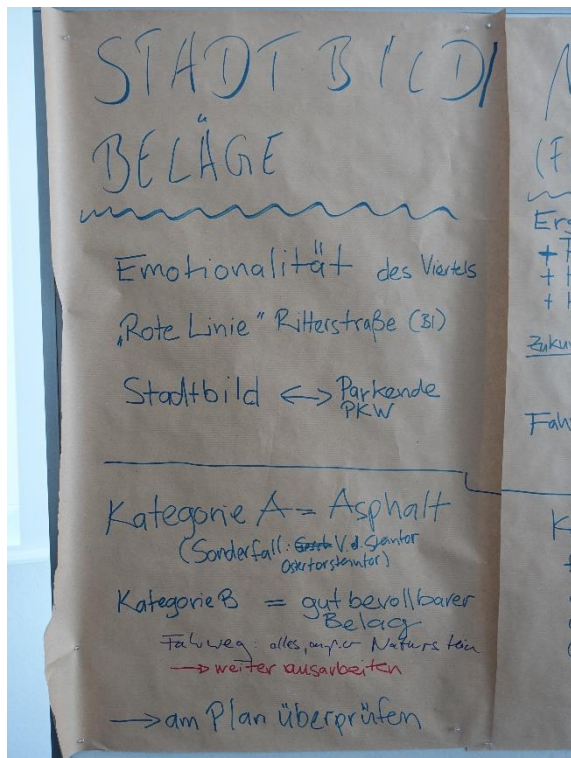 STADTBILD/
BELÄGE
Emotionalität des Viertels
„Rote Linie“ Ritterstraße (BI)
Stadtbild <-> Parkende
PKW
Kategorie A = Asphalt
(Sonderfall: V. d. Steintor
Ostertorsteintor)
Kategorie B = gut berollbarer
Belag
Fahrweg: alles, außer Naturstein
-> weiter ausarbeiten
-> am Plan überprüfen
(F
Erg
+
+
+
Zuku
Fah
K